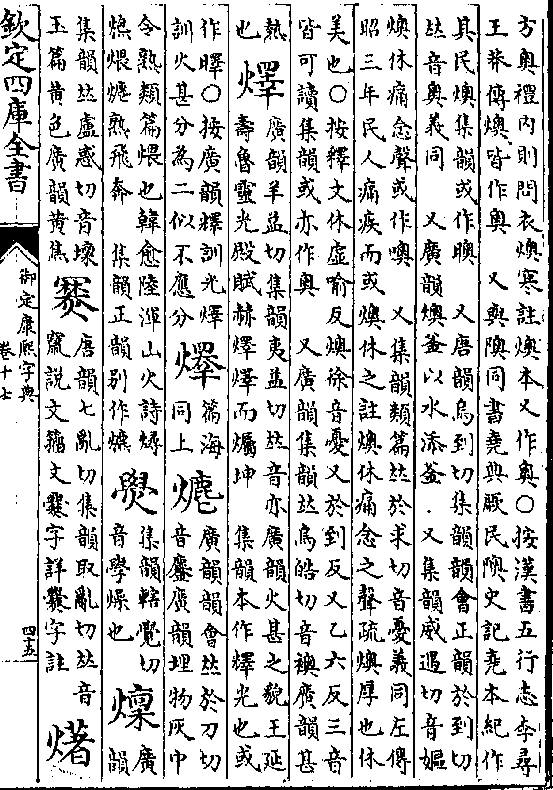 方奥禮内則問衣燠寒註燠本又作奥○按漢書五行志李尋
王莽傳燠皆作奥 又與隩同書堯典厥民隩史記堯本紀作
其民燠集韻或作䐿 又唐韻烏到切集韻韻會正韻於到切
𠀤音奥義同 又廣韻燠釜以水添釜 又集韻威遇切音嫗
燠休痛念聲或作噢 又集韻類篇𠀤於求切音憂義同左傳
昭三年民人痛疾而或燠休之註燠休痛念之聲疏燠厚也休
美也○按釋文休虚喻反燠徐音憂又於到反又乙六反三音
皆可讀集韻或亦作奥 又廣韻集韻𠀤烏皓切音襖廣韻甚
熱
也
燡
廣韻羊益切集韻夷益切𠀤音亦廣韻火甚之貌王延
壽魯靈光殿賦赫燡燡而爥坤 集韻本作釋光也或
作曎○按廣韻釋訓光燡
訓火甚分為二似不應分
篇海
同上
熝
廣韻韻會𠀤於刀切
音鏖廣韻埋物灰中
令熟類篇煨也韓愈陸渾山火詩燖
煨熝熟飛奔 集韻正韻别作
燢
集韻轄覺切
音學燥也
燣
廣
韻
集韻𠀤盧感切音壈
玉篇黄色廣韻黄焦
唐韻七亂切集韻取亂切𠀤音
竄說文籀文爨字詳爨字註
欽定四庫全書
御定康熙字典
卷十七
四五